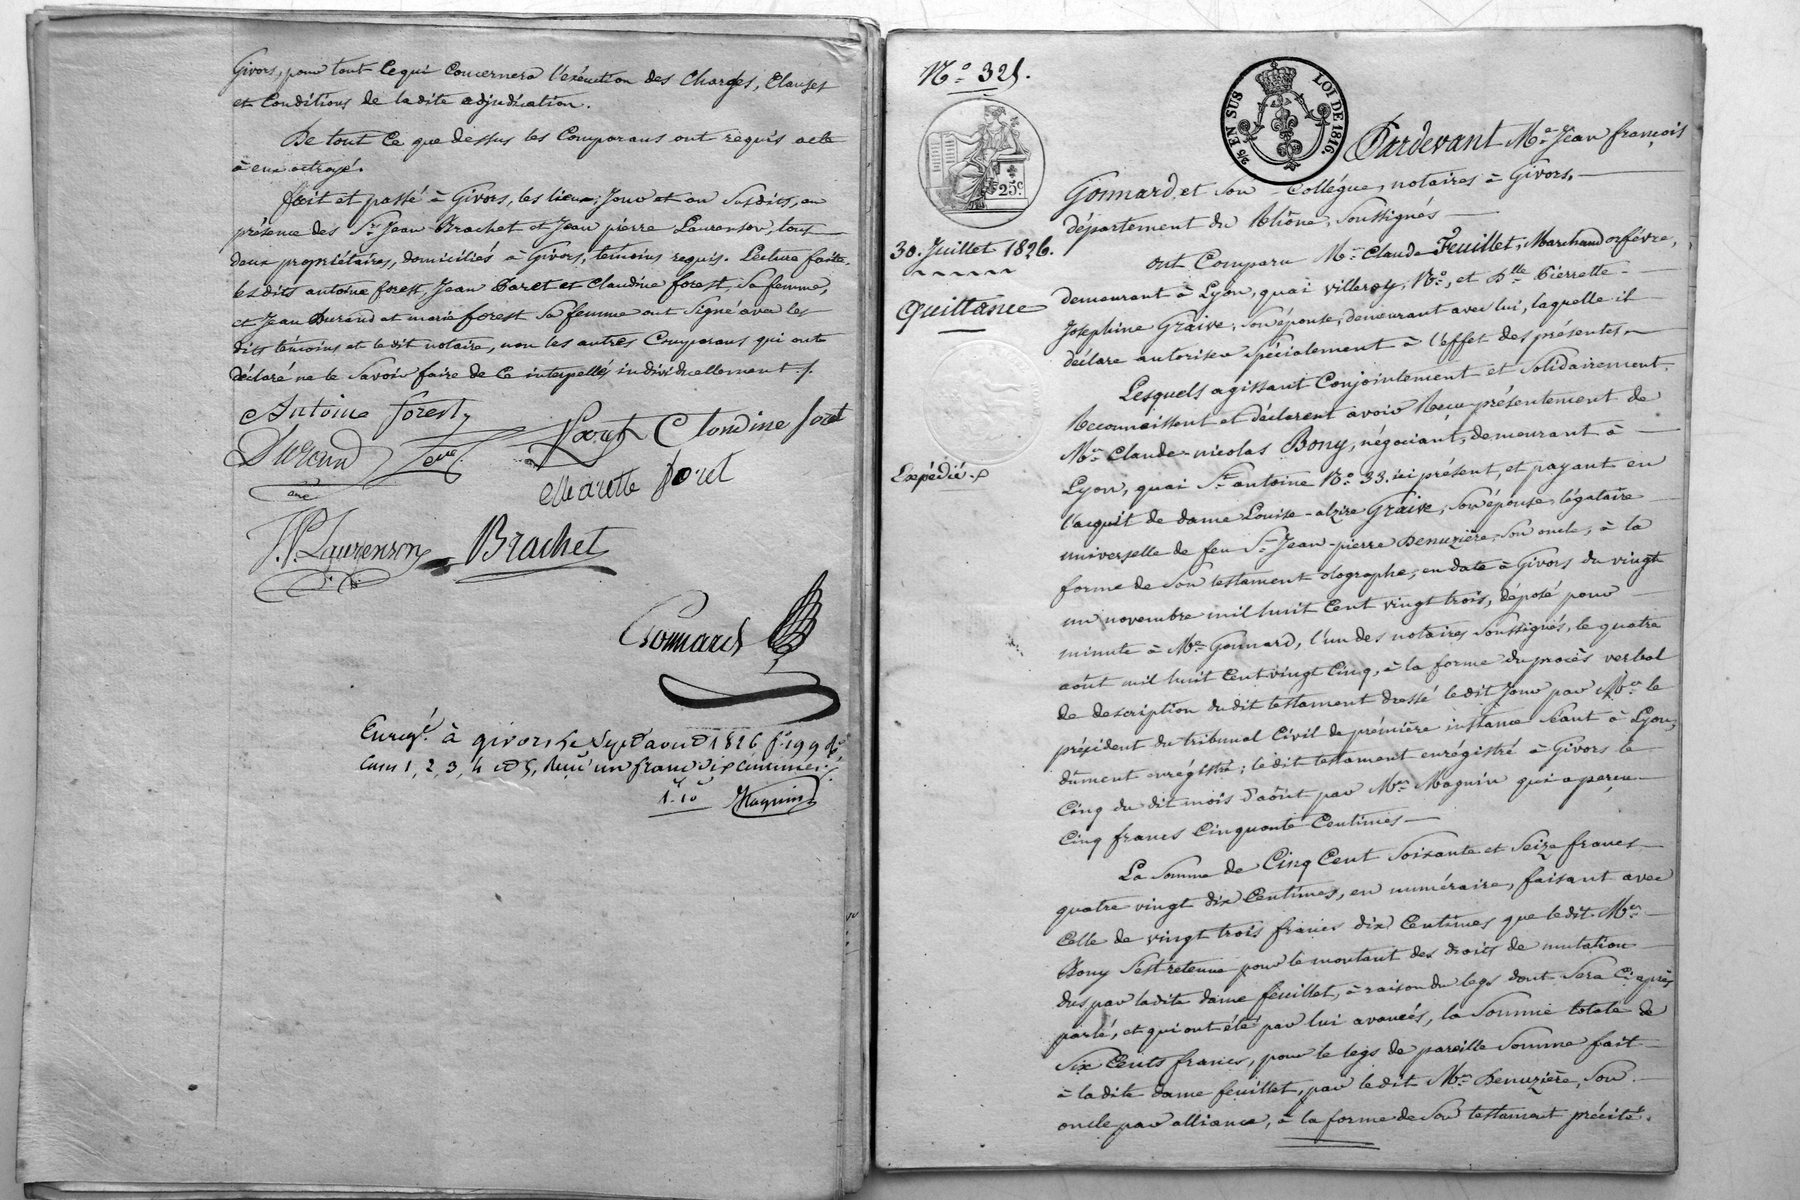 Givors, pour tout ce qui concernera l'exécution des charges, clauses
et conditions de la dite adjudication.
De tout ce que dessus les Comparans ont requis acte
à eux octroyé.
Fait et passé à Givors, les lieux, jour et an susdits, en
présence des Srs Jean Brachet et Jean pierre Laurenson, tous
deux propriétaires, domiciliés à Givors, témoins requis. Lecture faite
les dits antoine forest, Jean Paret et Claudine forest, sa femme,
et Jean Durand et marie forest sa femme ont signé avec les
dits témoins et le dit notaire, non les autres Comparans qui ont
déclaré ne le savoir faire de ce interpellés individuellement ./.
Antoine forest
Durand Paret Clondine foret
Mariette foret
J. P. Laurenson Brachet
Gonnard
Enregé. à givors le sept aout 1826 fo. 199
Cases 1, 2, 3, 4 et 5, Reçu un franc dix centimes
1.10 Magnin
No. 325.
25c.
2/5 EN SUS LOI DE 1816.
30. Juillet 1826.
Quittance
Expédié
Pardevant Me. Jean françois
Gonnard, et son Collégue, notaires à Givors,
département du Rhône, soussignés
ont Comparu Mr. Claude Feuillet, Marchand orfévre,
demeurant à Lyon, quai villeroy, No., et Dlle Pierrette
Josephine Graive, son épouse, demeurant avec lui, laquelle il
déclare autoriser spécialement à l'effet des présentes.
Lesquels agissant Conjointement et solidairement,
Reconnaissent et déclarent avoir Reçu présentement de
Mr. Claude-nicolas Bony, négociant, demeurant à
Lyon, quai St. antoine No. 33. ici présent, et payant en
l'acquit de dame Louise-alzire Graive, son épouse, légataire
universelle de feu Sr. Jean-pierre Denuzière, son oncle, à la
forme de son testament olographe, en date à Givors du vingt
un novembre mil huit cent vingt trois, déposé pour
minute à Me. Gonnard, l'un des notaires soussignés, le quatre
août mil huit Cent vingt Cinq, à la forme du procès verbal
de description du dit testament dressé le dit jour par Mr. le
président du tribunal Civil de première instance séant à Lyon,
dûment enrégistré; le dit testament enrégistré à Givors le
Cinq du dit mois d'août par Mr. Magnin qui a perçu
Cinq francs Cinquante Centimes
La somme de Cinq Cent soixante et seize francs
quatre vingt dix Centimes, en numéraire, faisant avec
Celle de vingt trois francs dix Centimes que le dit Mr.
Bony s'est retenue pour le montant des droits de mutation
dus par ladite dame feuillet, à raison du legs dont sera Ci après
parlé, et qui ont été par lui avancés, la somme totale de
Six Cents francs, pour le legs de pareille somme fait
à la dite dame feuillet, par le dit Mr. Denuzière, son
oncle par alliance, à la forme de son testament précité.